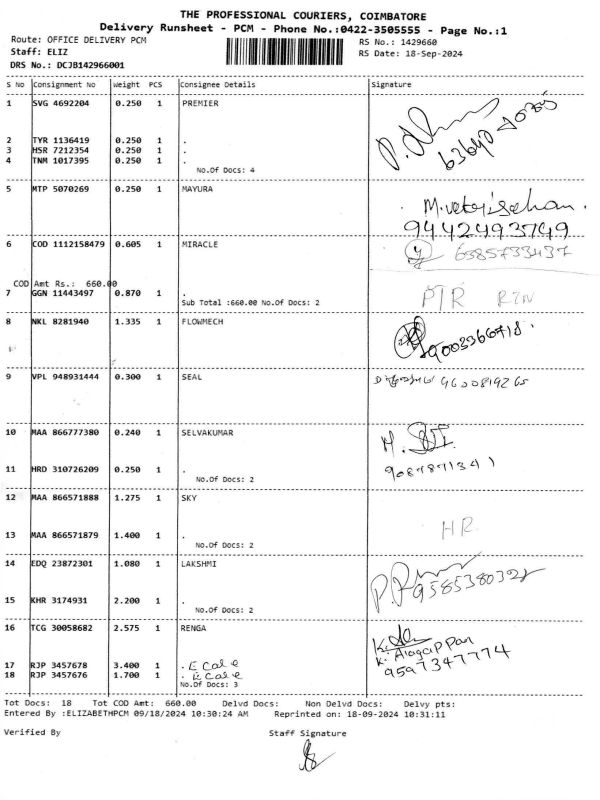 THE PROFESSIONAL COURIERS, COIMBATORE
Delivery Runsheet - PCM - Phone No.:0422-3505555 - Page No.:1
Route: OFFICE DELIVERY PCM RS No.: 1429660
Staff: ELIZ RS Date: 18-Sep-2024
DRS No.: DCJB142966001
S No Consignment No Weight PCS Consignee Details Signature
1 SVG 4692204 0.250 1 PREMIER
2 TYR 1136419 0.250 1 .
3 HSR 7212354 0.250 1 .
4 TNM 1017395 0.250 1 .
No.Of Docs: 4
5 MTP 5070269 0.250 1 MAYURA
9442493749
6 COD 1112158479 0.605 1 MIRACLE 6385733437
COD Amt Rs.: 660.00
7 GGN 11443497 0.870 1 .
Sub Total :660.00 No.Of Docs: 2
PTR
8 NKL 8281940 1.335 1 FLOWMECH
9003366718.
9 VPL 948931444 0.300 1 SEAL
10 MAA 866777380 0.240 1 SELVAKUMAR
11 HRD 310726209 0.250 1 .
No.Of Docs: 2
12 MAA 866571888 1.275 1 SKY
HR
13 MAA 866571879 1.400 1 .
No.Of Docs: 2
14 EDQ 23872301 1.080 1 LAKSHMI
15 KHR 3174931 2.200 1 .
No.Of Docs: 2
16 TCG 30058682 2.575 1 RENGA
K. Alagappan
9597347774
17 RJP 3457678 3.400 1 .
18 RJP 3457676 1.700 1 .
No.Of Docs: 3
Tot Docs: 18 Tot COD Amt: 660.00 Delvd Docs: Non Delvd Docs: Delvy pts:
Entered By :ELIZABETHPCM 09/18/2024 10:30:24 AM Reprinted on: 18-09-2024 10:31:11
Verified By Staff Signature